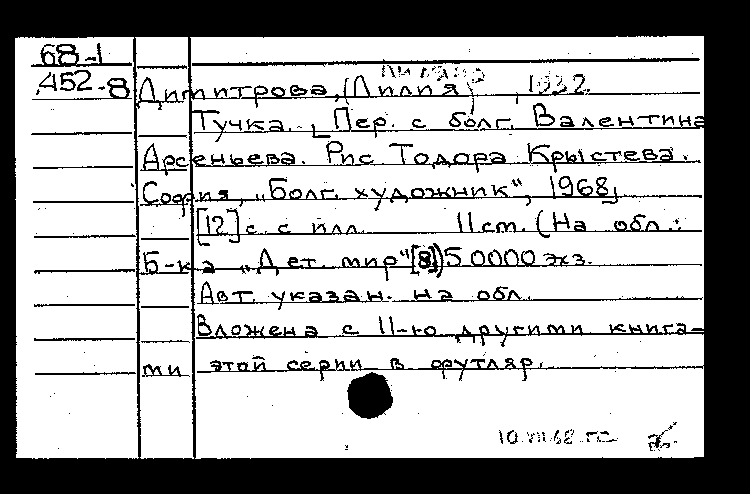 68-1
452-8
Лиляна
Димитрова, (Лилия) , 1932
Тучка. Пер. с болг. Валентина
Арсеньева. Рис Тодора Крыстева.
София, „Болг. художник“, 1968.
[12] с. с илл. 11 см. (На обл.:
Б-ка „Дет. мир“[8]) 50000 экз.
Авт. указан. на обл.
Вложена с 11-ю другими книга-
ми этой серии в футляр.
10 VII 68